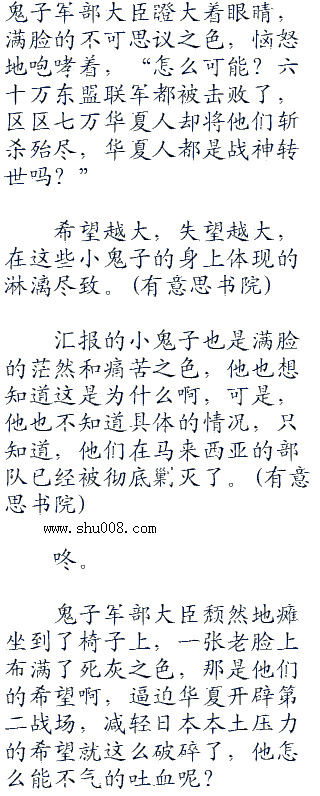 鬼子军部大臣瞪大着眼睛，
满脸的不可思议之色，恼怒
地咆哮着，“怎么可能？六
十万东盟联军都被击败了，
区区七万华夏人却将他们斩
杀殆尽，华夏人都是战神转
世吗？”
希望越大，失望越大，
在这些小鬼子的身上体现的
淋漓尽致。(有意思书院)
汇报的小鬼子也是满脸
的茫然和痛苦之色，他也想
知道这是为什么啊，可是，
他也不知道具体的情况，只
知道，他们在马来西亚的部
队已经被彻底剿灭了。(有意
思书院)
www.shu008.com
咚。
鬼子军部大臣颓然地瘫
坐到了椅子上，一张老脸上
布满了死灰之色，那是他们
的希望啊，逼迫华夏开辟第
二战场，减轻日本本土压力
的希望就这么破碎了，他怎
么能不气的吐血呢？